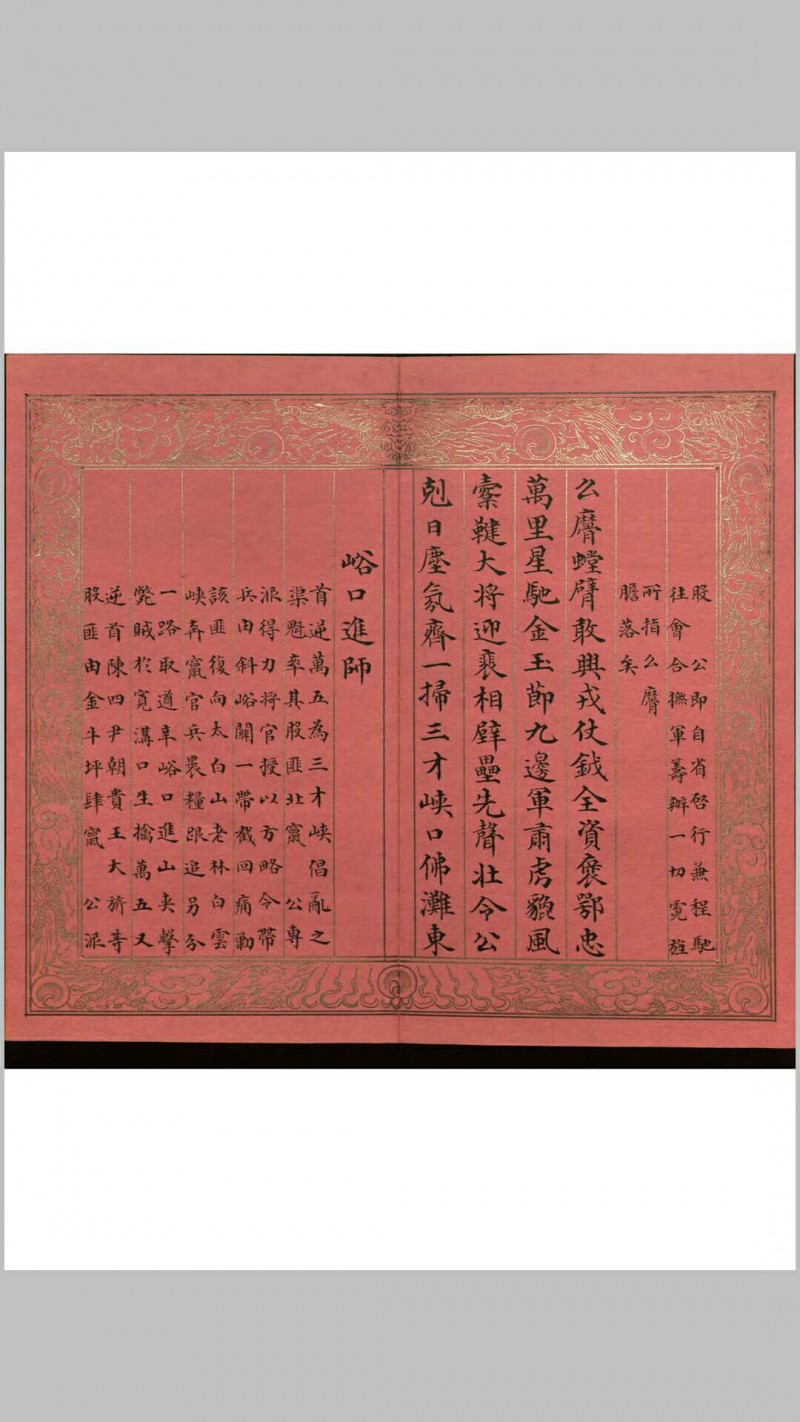 股　公即自省啓行兼程馳
往會合撫軍籌辦一切霓旌
所指么䯢
膽落矣
么䯢螳臂敢興戎仗鉞全資褒鄂忠
萬里星馳金玉節九邊軍肅虎貔風
櫜鞬大将迎裴相壁壘先聲壯令公
剋日塵氛齊一掃三才峽口佛灘東
峪口進師
首逆萬五為三才峽倡亂之
渠魁率其股匪北竄　公專
派得力将官授以方略令帶
兵由斜峪關一帶截回痛勦
該匪復向太白山老林白雲
峽奔竄官兵裹糧跟追另分
一路取道辛峪口進山夾擊
斃賊於寬溝口生擒萬五又
逆首陳四尹朝貴王大旂等
股匪由金斗坪肆竄　公派